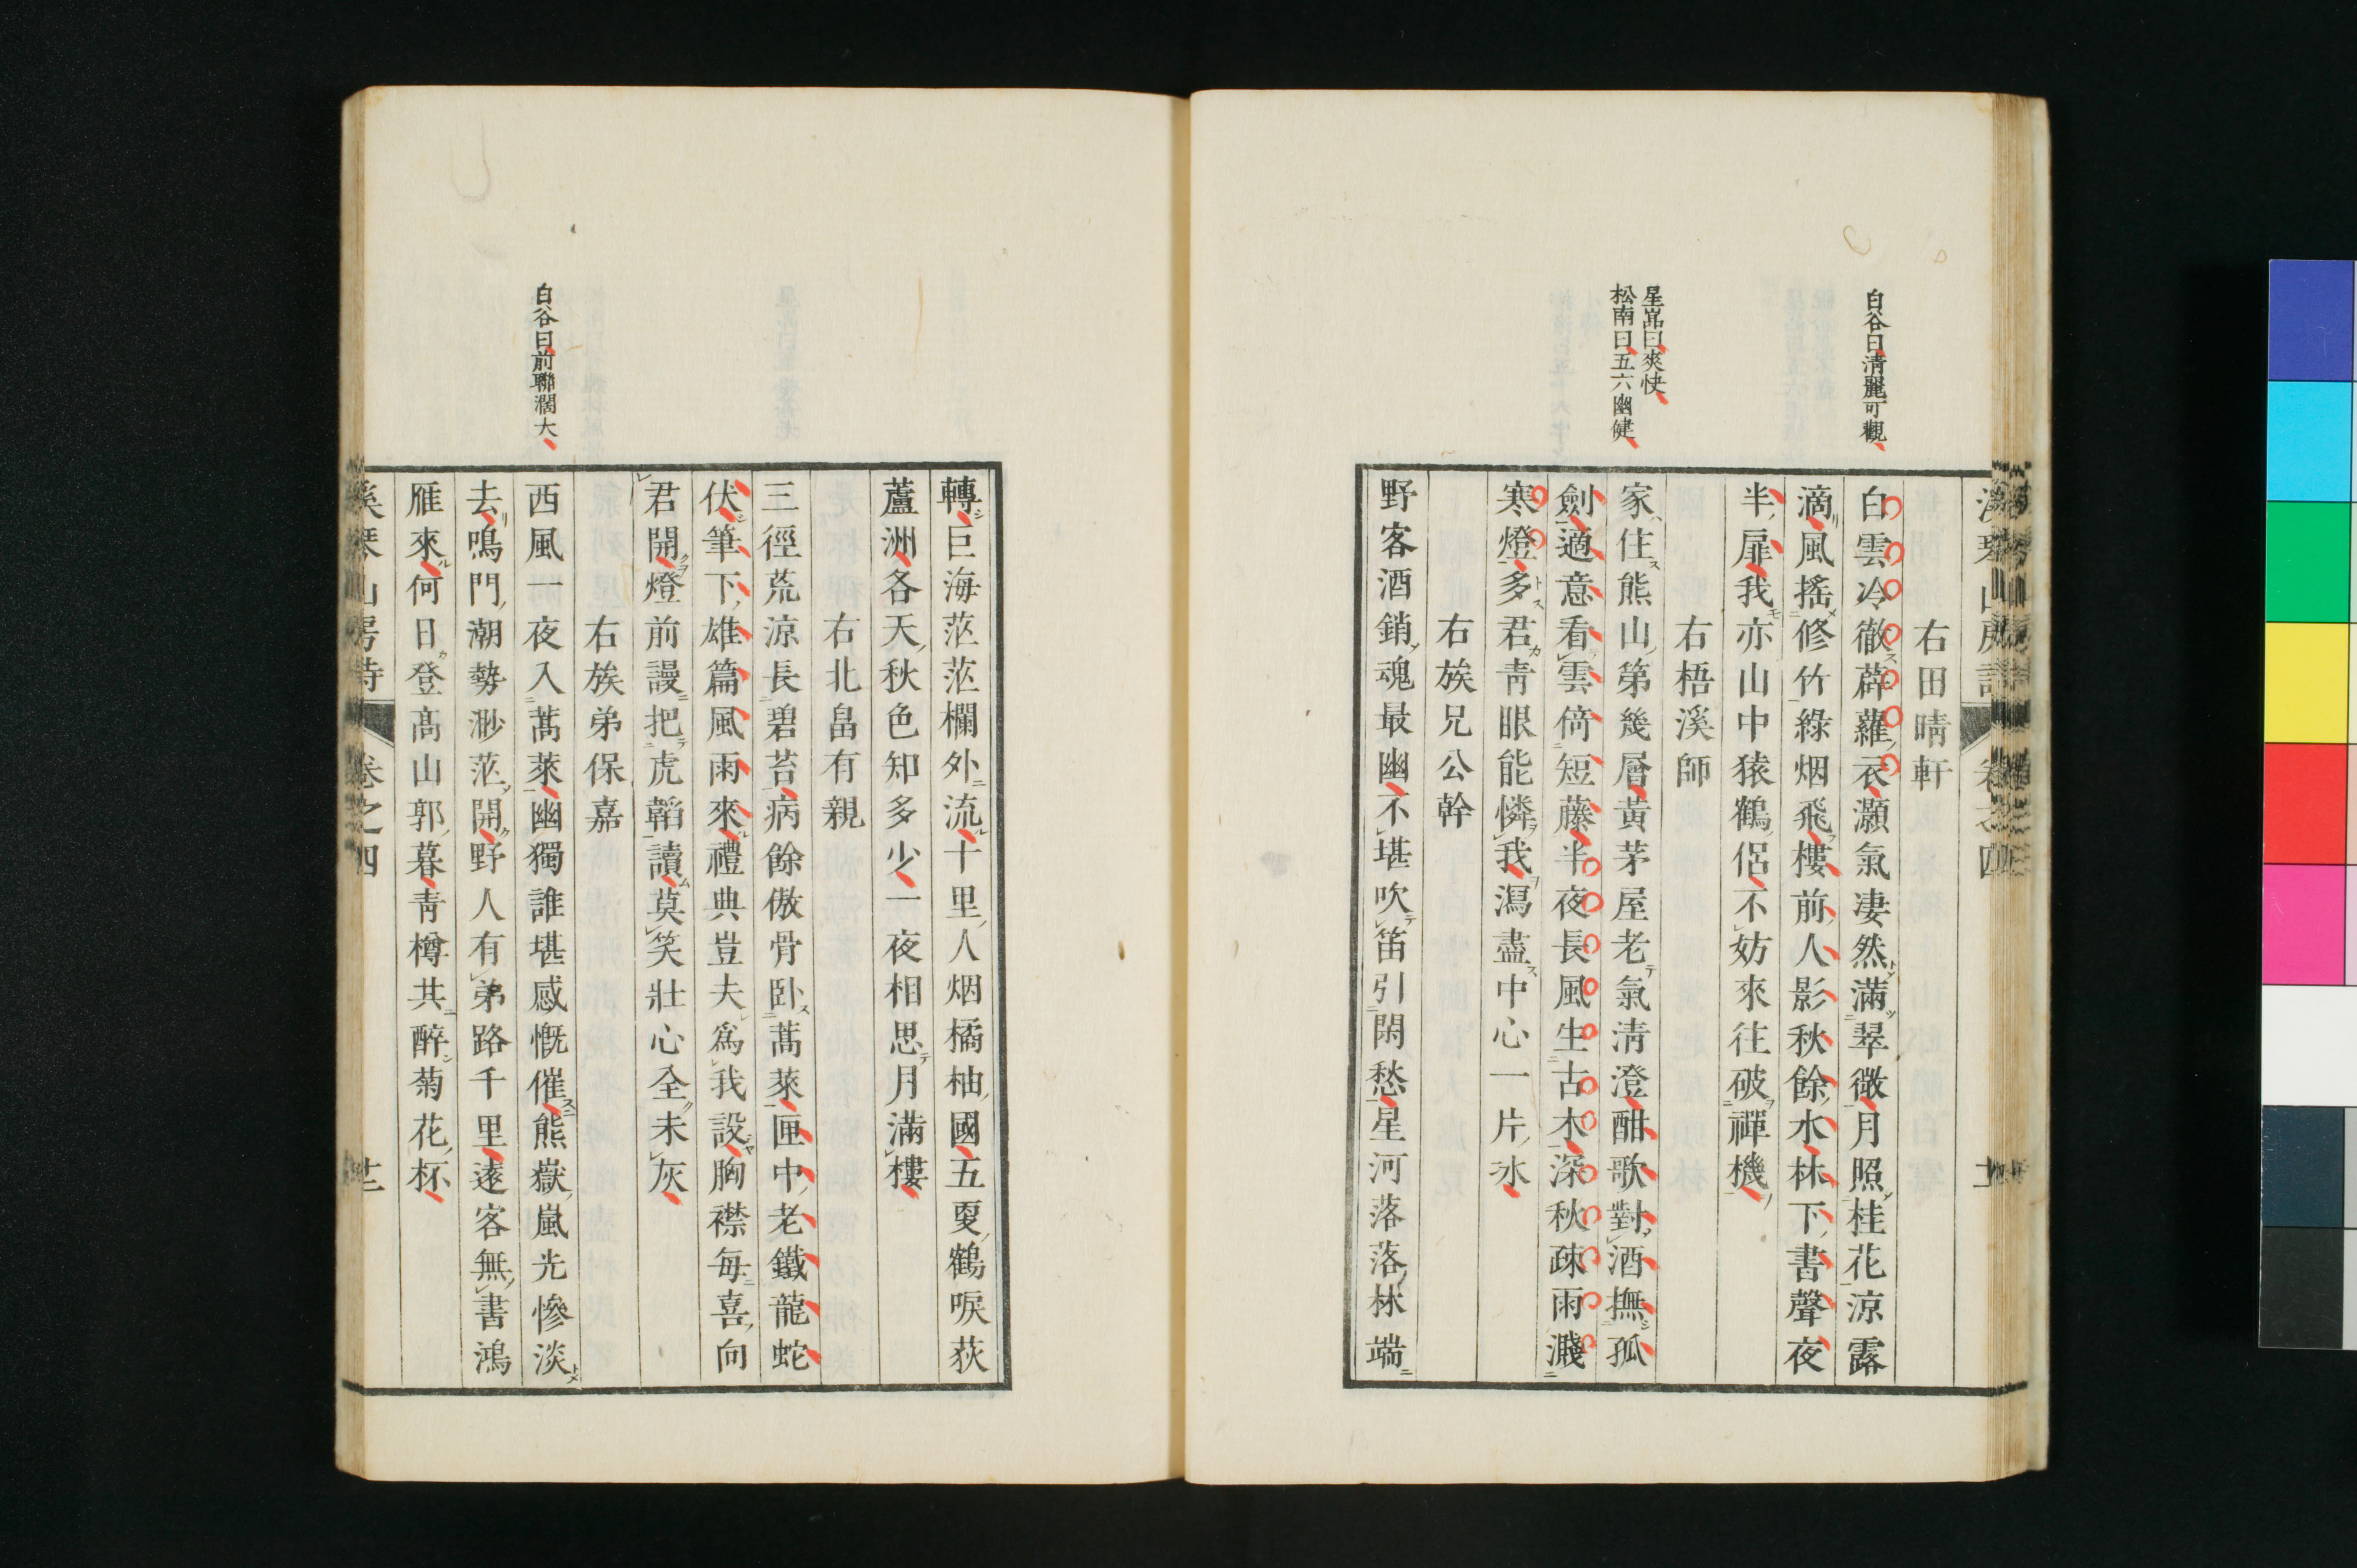 白谷曰清麗可觀
星嵓曰爽快
松南曰五六幽健
右田晴軒
白雲冷徹薜蘿衣灝氣凄然滿翠微月照桂花涼露
滴風搖修竹綠烟飛樓前人影秋餘水林下書聲夜
半扉我亦山中猿鶴侶不妨來往破禪機
右梧溪師
家住熊山第幾層黃茅屋老氣清澄酣歌對酒撫孤
劍適意看雲倚短藤半夜長風生古木深秋疎雨濺
寒燈多君靑眼能憐我瀉盡中心一片氷
右族兄公幹
野客酒銷魂最幽不堪吹笛引閑愁星河落落林端
白谷曰前聯濶大
轉巨海茫茫欄外流十里人烟橘柚國五更鶴唳荻
蘆洲各天秋色知多少一夜相思月滿樓
右北畠有親
三徑荒涼長碧苔病餘傲骨臥蒿萊匣中老鐵龍蛇
伏筆下雄篇風雨來禮典豈夫爲我設胸襟每喜向
君開燈前謾把虎韜讀莫笑壯心全未灰
右族弟保嘉
西風一夜入蒿萊幽獨誰堪感慨催熊嶽嵐光慘淡
去鳴門潮勢渺茫開野人有弟路千里遠客無書鴻
雁來何日登髙山郭暮靑樽共醉菊花杯
山房詩
卷之四